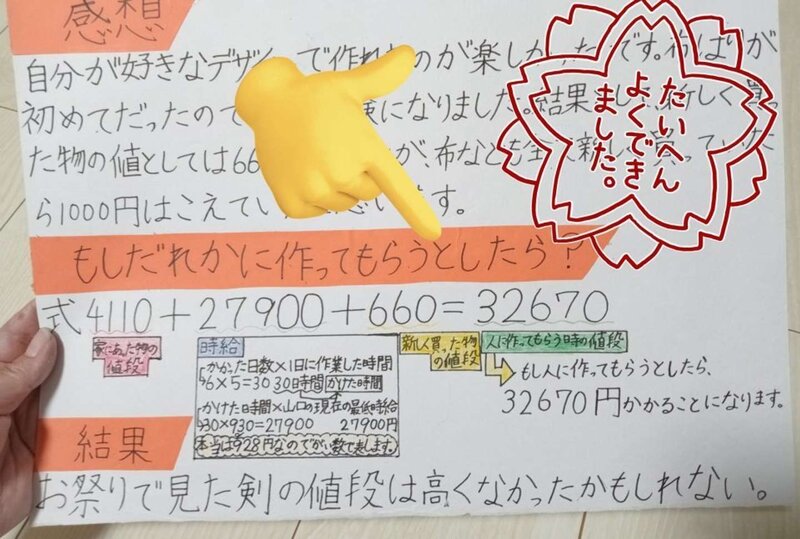 感想
自分が好きなデザインで作れたのが楽しかったです。布ばりが
初めてだったので 験になりました。結果 新しく買っ
た物の値としては66 が、布なども全 新し 買っていた
ら1000円はこえてい 思います。
たいへん
よくでき
ました。
もしだれかに作ってもらうとしたら?
式4110+27900+660=32670
家にあった物の
値段
時給
かかった日数×1日に作業した時間
6×5=30 30時間 かけた時間
かけた時間×山口の現在の最低時給
930×930=27900 27900円
本当は928円なのでがい数で表します。
新しく買った物
の値段
人に作ってもらう時の値段
もし人に作ってもらうとしたら、
32670円かかることになります。
結果
お祭りで見た剣の値段は高くなかったかもしれない。